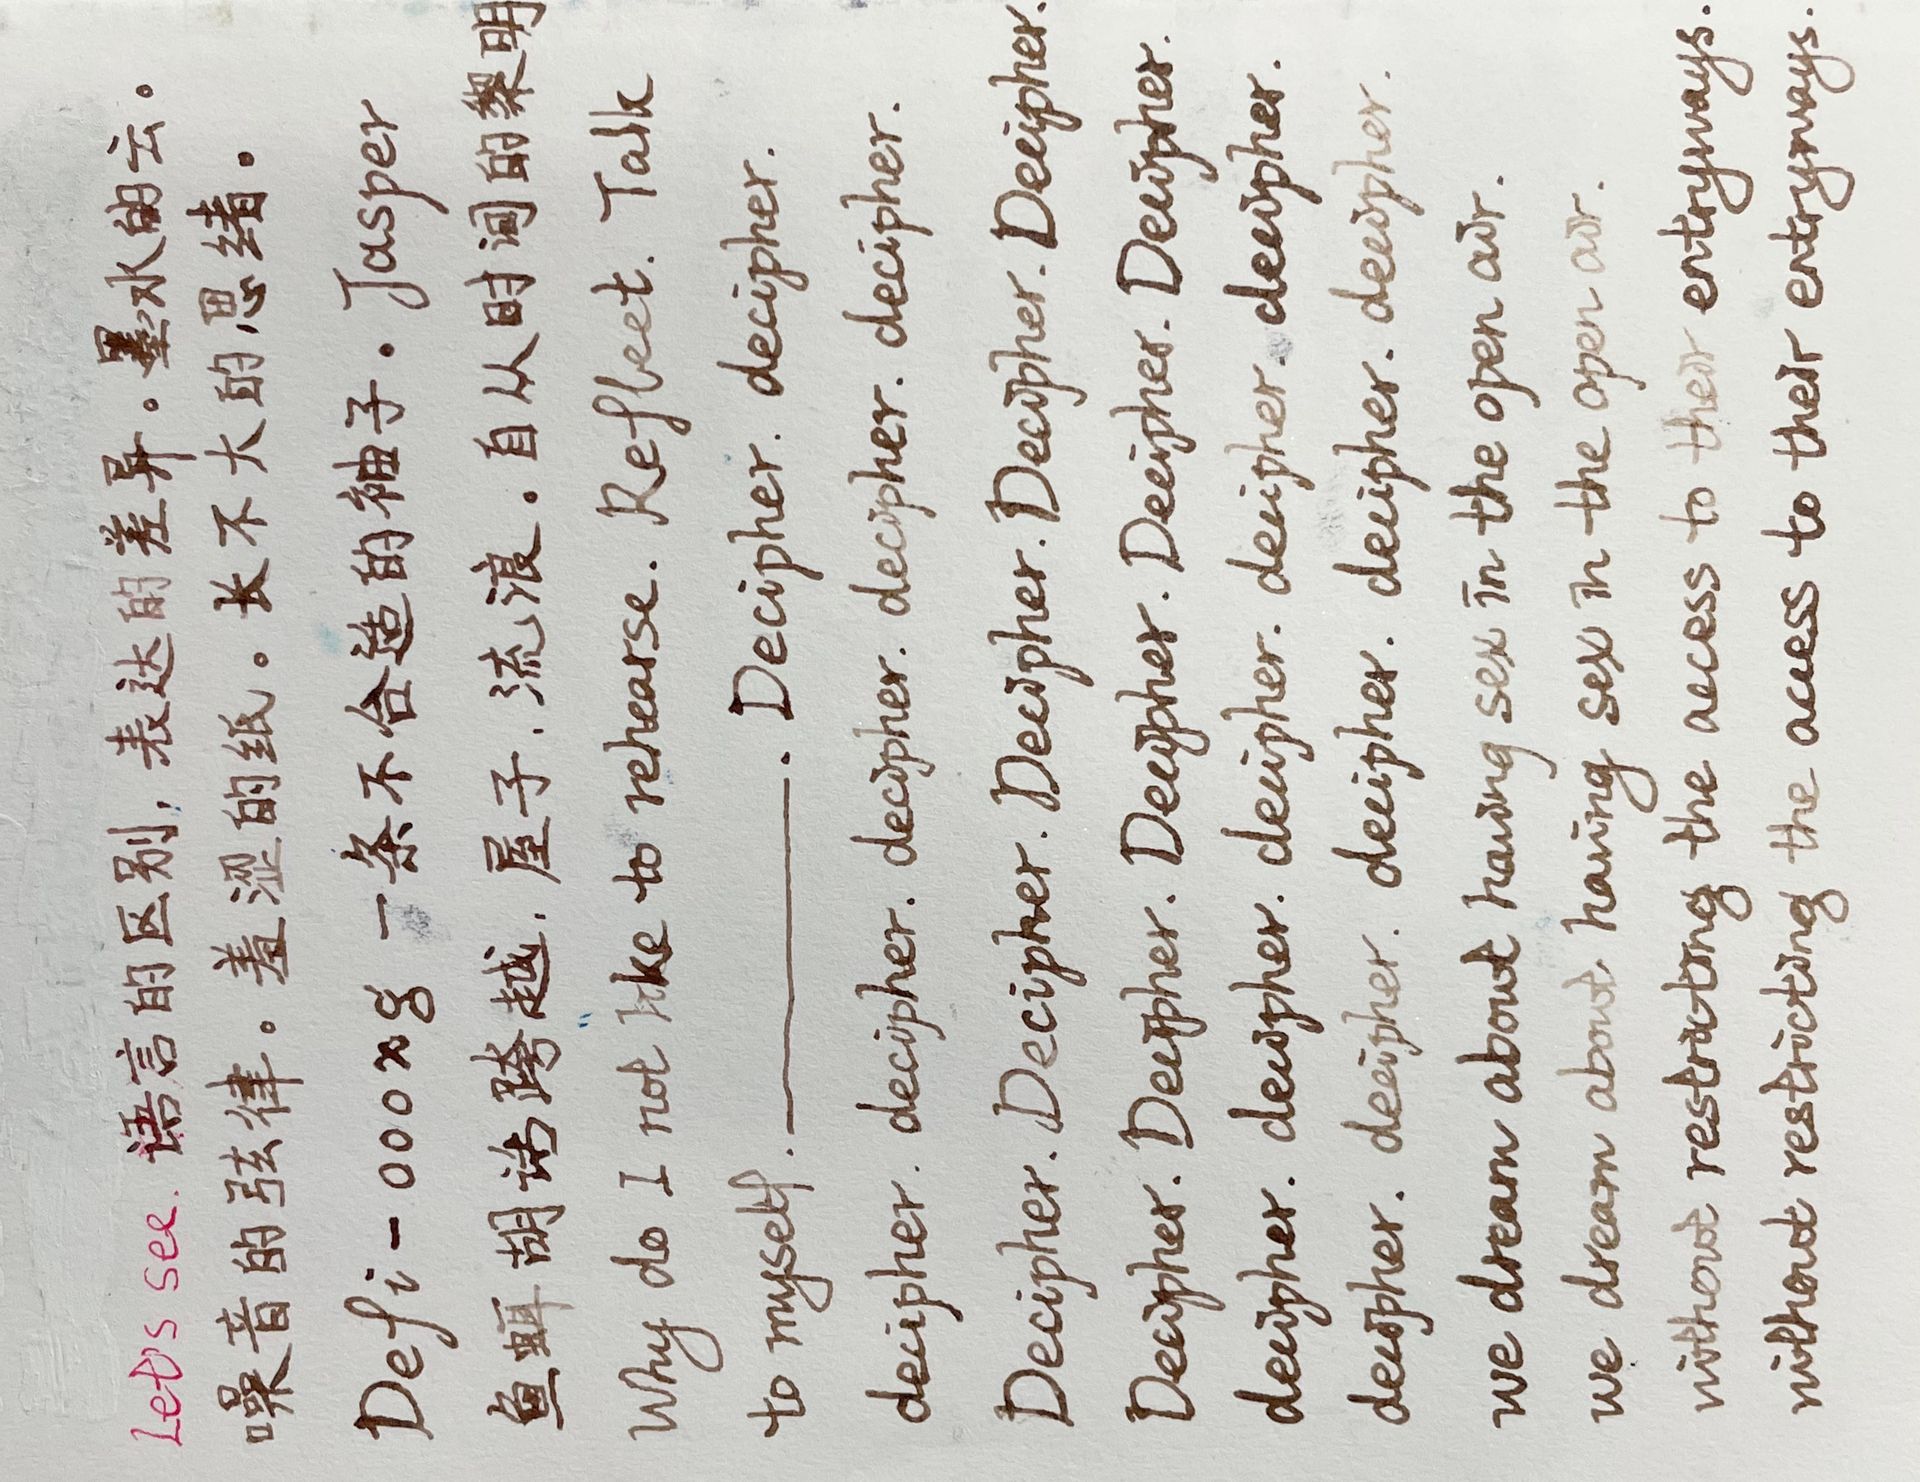 Let's see. 语言的区别, 表达的差异。墨水的云。
噪音的弦律。羞涩的纸。长不大的思绪。
Defi-000xg 一条不合适的袖子。Jasper
鱼 胡诌跨越. 屋子. 流浪。自从时间的黎明
Why do I not like to rehearse. Reflect. Talk
to myself. ______. Decipher. decipher.
decipher. decipher. decipher. decipher. decipher. decipher.
Decipher. Decipher. Decipher. Decipher. Decipher. Decipher.
Decipher. Decipher. Decipher. Decipher. Decipher. Decipher.
decipher. decipher. decipher. decipher. decipher. decipher.
decipher. decipher. decipher. decipher. decipher. decipher.
we dream about having sex in the open air.
we dream about having sex in the open air.
without restricting the access to their entryways.
without restricting the access to their entryways.